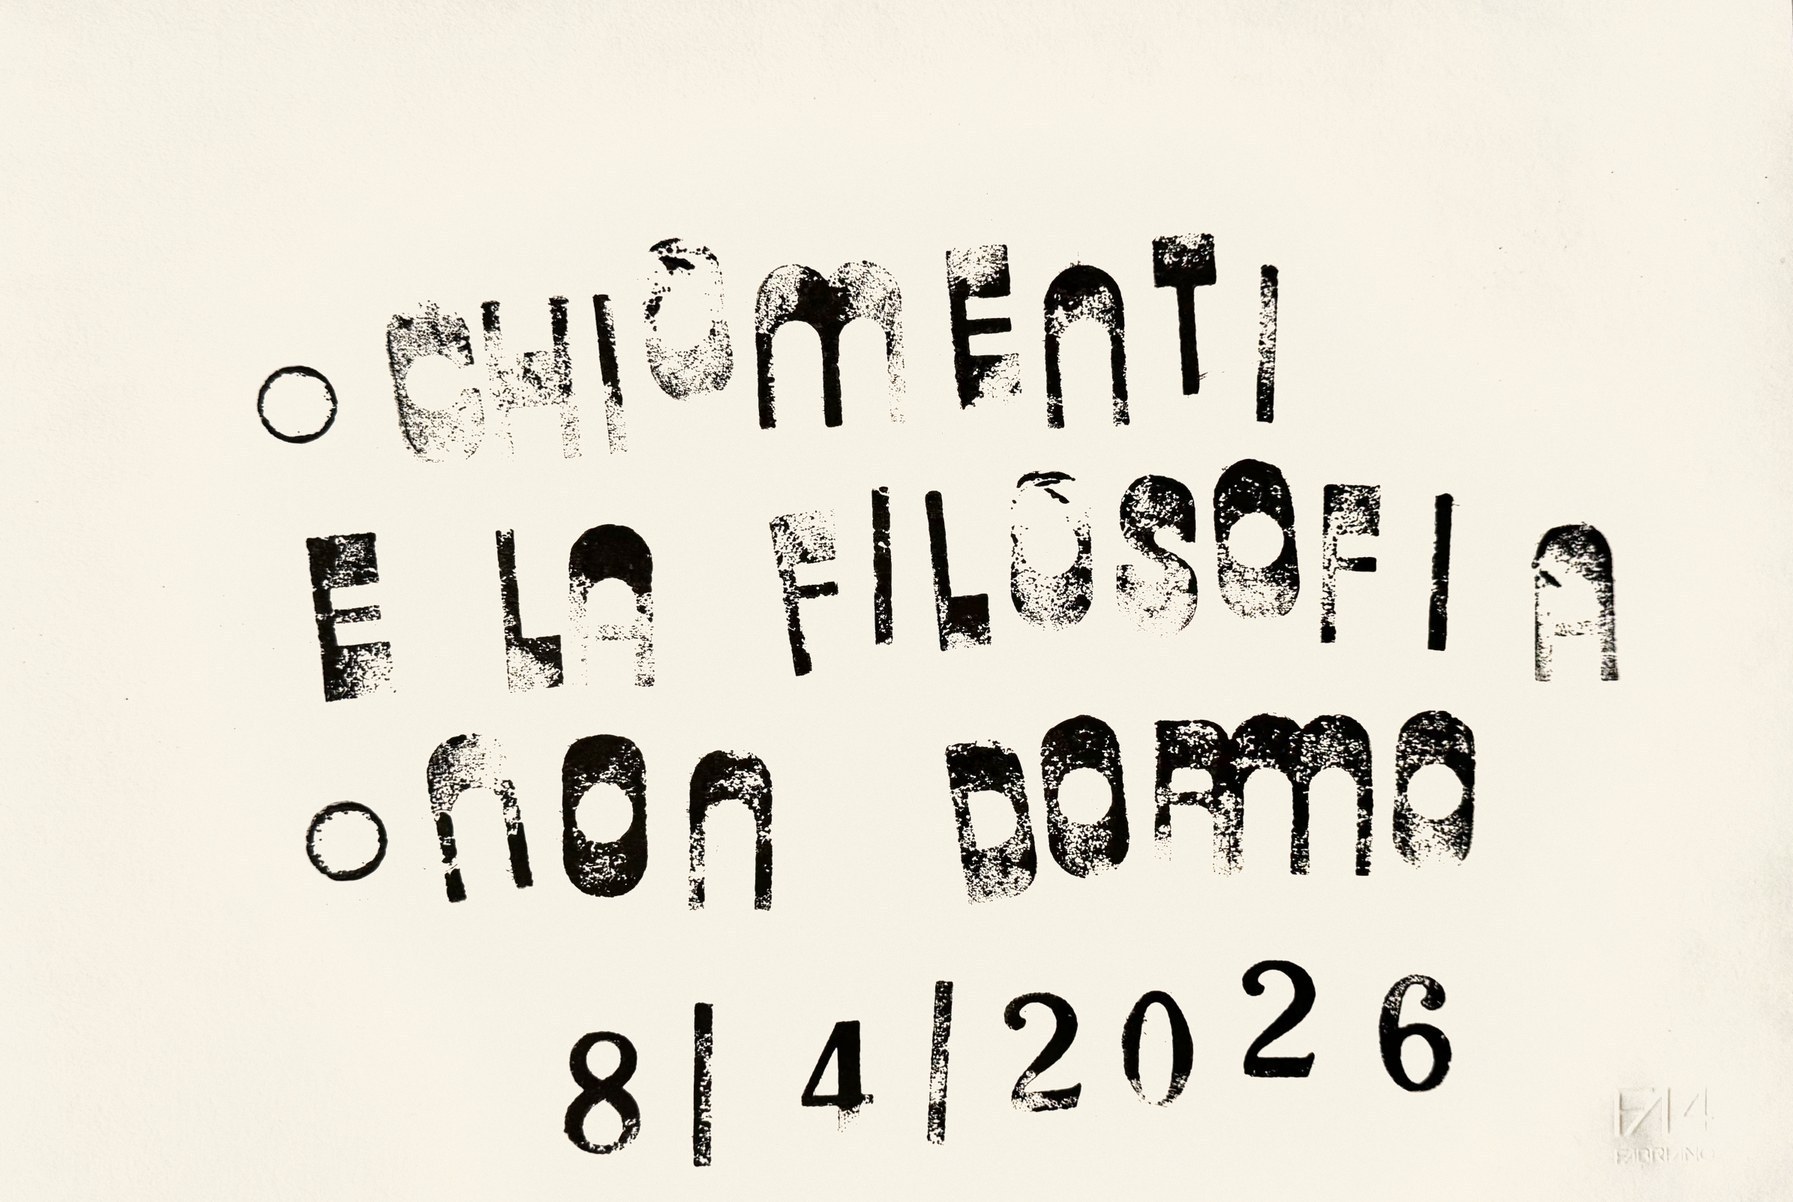 ○ CHIOMENTI
E LA FILOSOFIA
○ NON DORMO
8/4/2026
FA4
FABRIANO